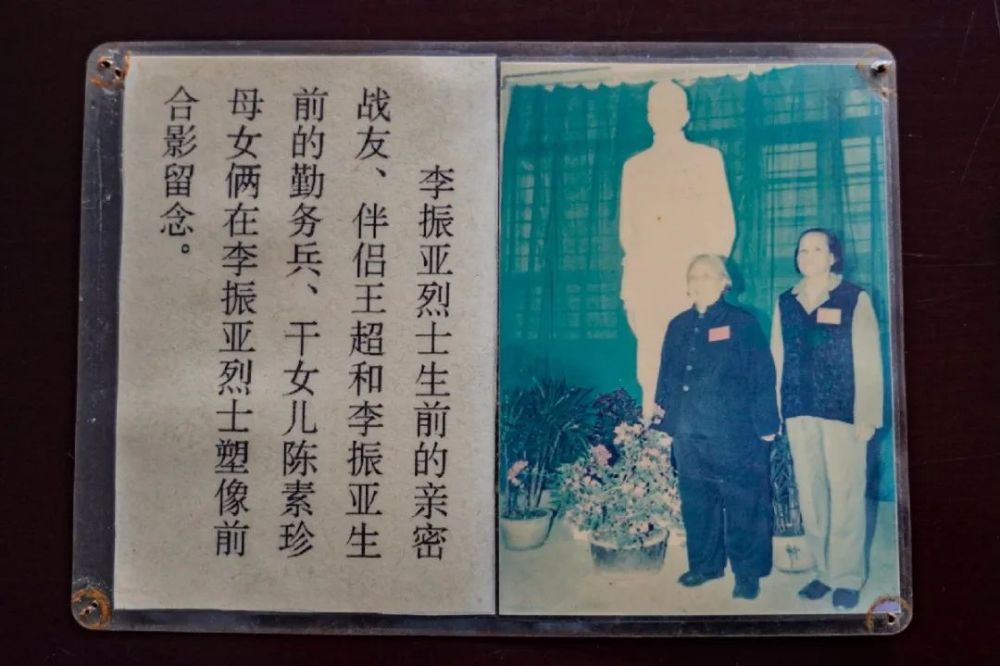 李振亚烈士生前的亲密
战友、伴侣王超和李振亚生
前的勤务兵、干女儿陈素珍
母女俩在李振亚烈士塑像前
合影留念。